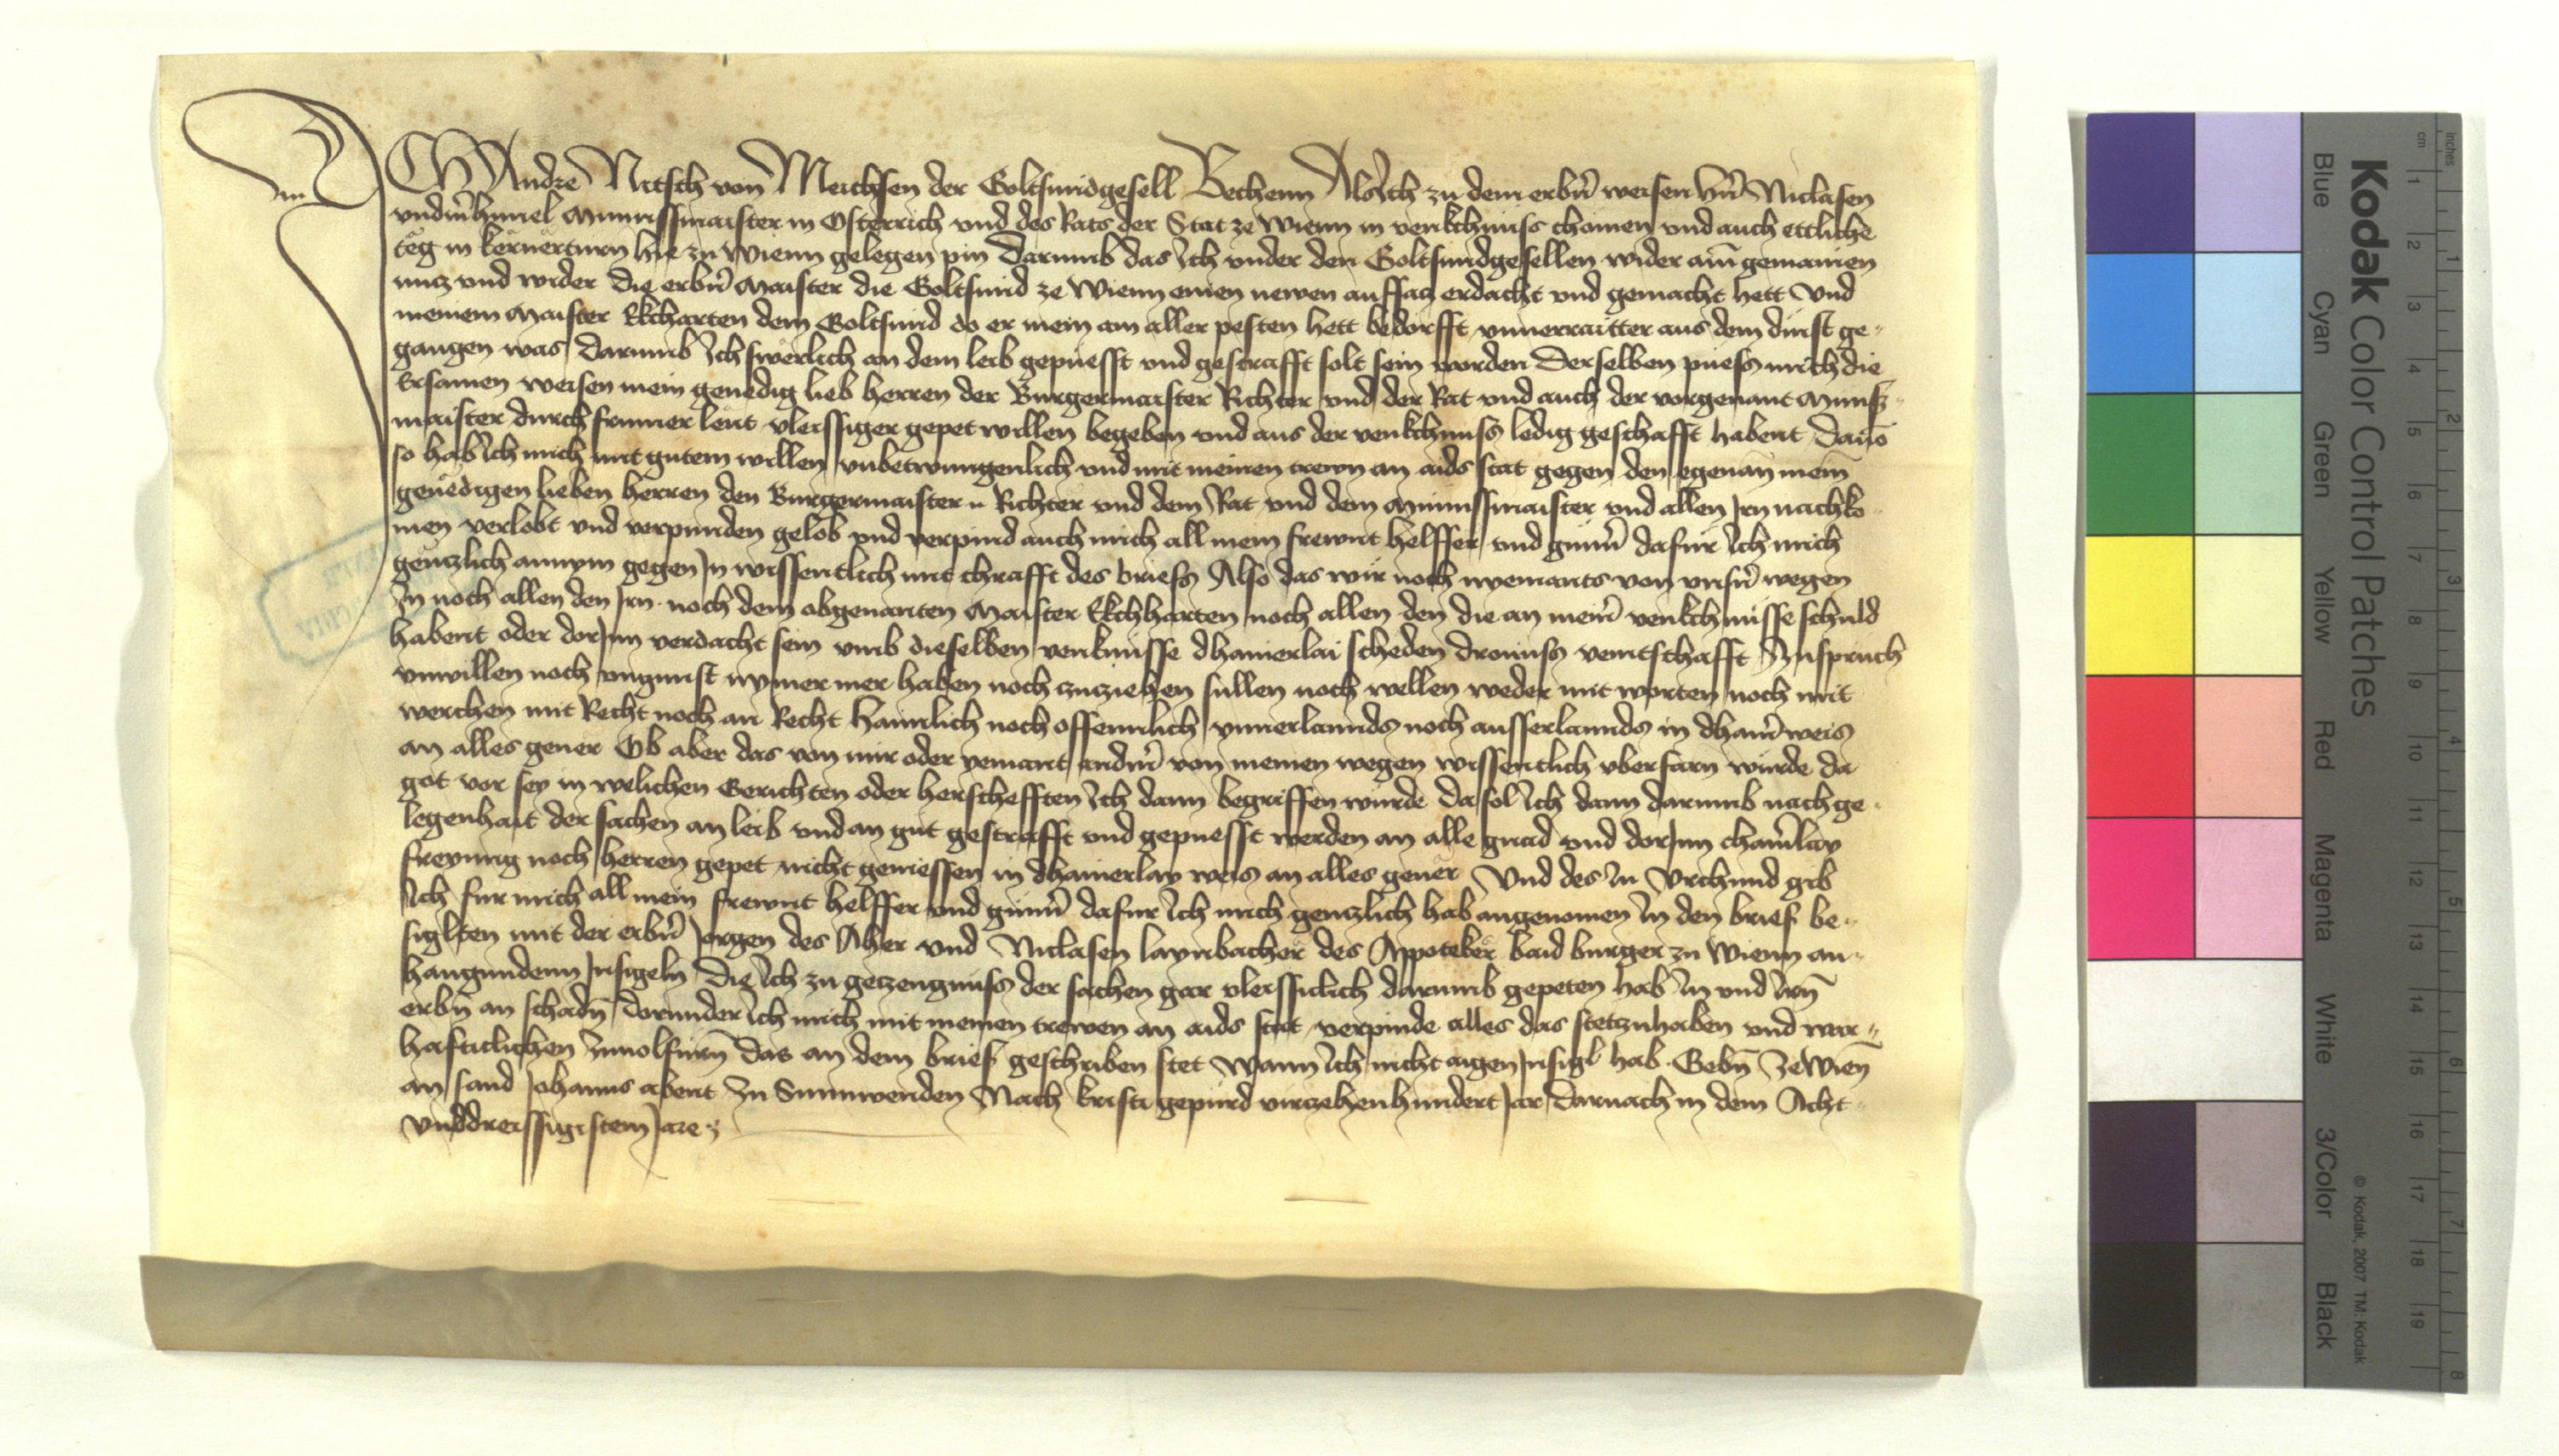 ICH Andre Nitsch von Meichsen der Goltsmidgesell Bechenn Als ich zu dem erbn̄ weisen hn̄ Niclasen
vnderm̄himel Munssmaister in Osterrich vnd des Rats der Stat ze Wienn in venkchnuss chomen vnd auch ettliche
teg in kernerturn hie zu Wienn gelegen pin Darumb das ich vnder den Goltsmidgesellen wider ain̄ gemainen
nucz vnd wider die erbn̄ Maister die Goltsmid ze Wienn einen newen auffacz erdacht vnd gemacht hett Vnd
meinem Maister Ekcharten dem Goltsmid do er mein am aller pesten hett bedorfft vnuerraitter aus dem dinst ge-
gangen was Darumb ich swerlich an dem leib gepuesst vnd gestrafft solt sein worden Derselben puess mich die
Ersamen weisen mein genedig lieb herren der Burgermaister Richter vnd der Rat vnd auch der vorgenant Munss-
maister durch frumer leut vleissiger gepet willen begeben vnd aus der venkchnuss ledig geschafft habent Dauō
so hab ich mich mit gutem willen vnbetwungenlich vnd mit meinen trewn an aids stat gegen den egenan̄ mein̄
genedigen lieben herren den Burgermaister Richter vnd dem Rat vnd dem Munssmaister vnd allen Irn nachko-
men verlobt vnd verpunden gelob vnd verpind auch mich all mein frewnt helffer vnd gunn̄ dafur ich mich
genczlich annym gegen In wissentlich mit chrafft des briefs Also das wir noch nyemants von vnsn̄ wegen
In noch allen den Irn noch dem obgenanten Maister Ekchharten noch allen den die an mein̄ venkchnusse schuld
habent oder dorInn verdacht sein vmb dieselben venknusse dhainerlai scheden dronuss veintschafft Zuspruch
vnwillen noch vngunst nymer mer haben noch zuziehen sullen noch wellen weder mit worten noch mit
werchen mit Recht noch an Recht haimlich noch offennlich Innerlannds noch ausserlannds in dhain̄ weis
an alles geuer Ob aber das von mir oder yemant andm̄ von meinen wegen wissentlich vberfarn wurde da
got vor sey in welichen Gerichten oder herschefften ich dann begriffen wurde Da sol ich dann darumb nach ge-
legenhait der sachen an leib vnd an gut gestrafft vnd gepuesst werden an alle gnad vnd dorInn chain̄lay
freyung noch herren gepet nicht geniessen in dhainerlay weis an alles geuer Vnd des zu Vrchund gib
ich fur mich all mein frewnt helffer vnd gunn̄ dafur ich mich genczlich hab angenomen In den brief be-
siglten mit der erbn̄ Jorgen des Aher vnd Niclasen laynbacher des Appoteker baid burger zu Wienn an-
hangundenn Insigeln Die ich zu geczeugnuss der sachen gar vleissiclich darumb gepeten hab In vnd Irn̄
erbn̄ an schadn̄ Dorunder ich mich mit meinen trewen an aids stat verpinde alles das stet zu haben vnd war-
hafticlichen zuuolfurn̄ das an dem brief geschriben stet Wann ich nicht aigen Insigl hab. Gebn̄ ze Wien̄
an sand Johanns abent Zu Sunnwenden Nach kristi gepurd vierczehenhundert Jar Darnach in dem Acht-
vnddreissigistem Jare
Kodak Color Control Patches
Blue Cyan Green Yellow Red Magenta White 3/Color Black
© Kodak, 2007 TM: Kodak
cm 1 2 3 4 5 6 7 8 9 10 11 12 13 14 15 16 17 18 19
inches 1 2 3 4 5 6 7 8